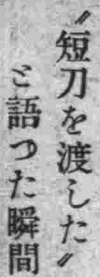 〝短刀を渡した〟
と語つた瞬間